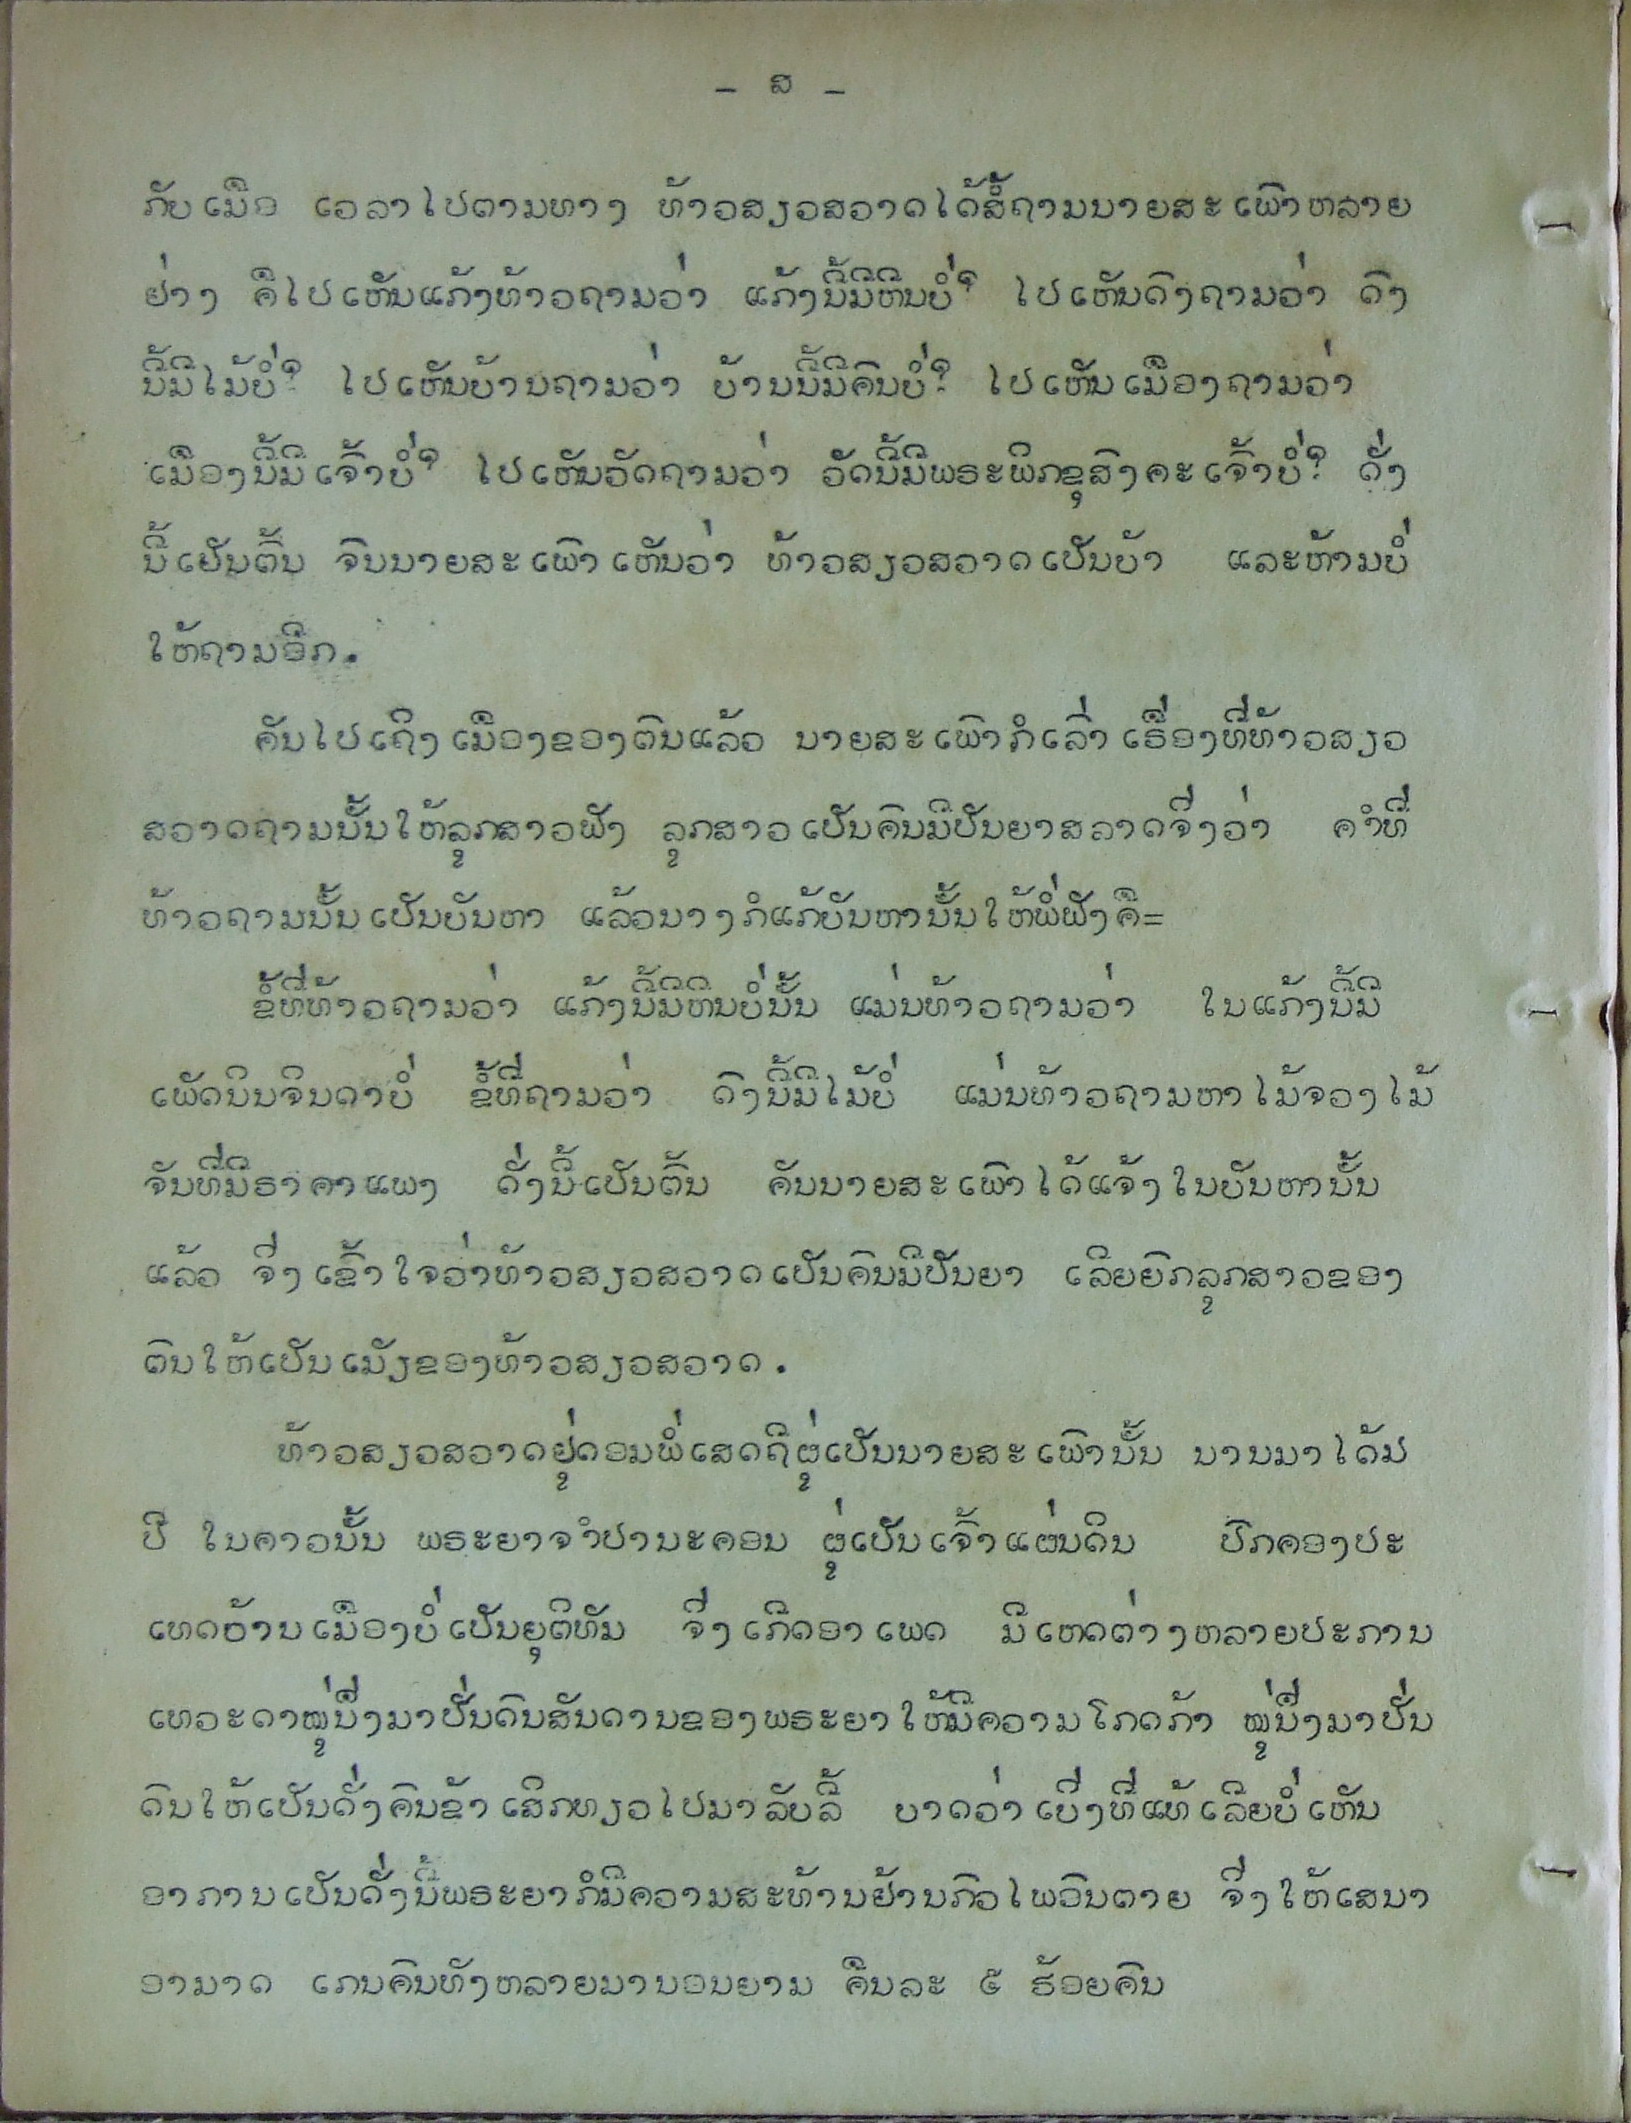 - ສ -
ກັບເມືອ ເວລາໄປຕາມທາງ ທ້າວສຽວສວາດໄດ້ສໍ້ຖາມນາຍສະເພົາຫລາຍ
ຢ່າງ ຄືໄປເຫັນແກ້ງທ້າວຖາມວ່າ ແກ້ງນີ້ມີຫີນບໍ່? ໄປເຫັນດົງຖາມວ່າ ດົງ
ນີ້ມີໄມ້ບໍ່? ໄປເຫັນບ້ານຖາມວ່າ ບ້ານນີ້ມີຄົນບໍ່? ໄປເຫັນເມືອງຖາມວ່າ
ເມືອງນີ້ມີເຈົ້າບໍ່? ໄປເຫັນວັດຖາມວ່າ ວັດນີ້ມີພຣະພິກຂຸສົງຄະເຈົ້າບໍ່? ດັ່ງ
ນີ້ເປັນຕົ້ນ ຈົນນາຍສະເພົາເຫັນວ່າ ທ້າວສຽວສວາດເປັນບ້າ ແລະຫ້າມບໍ່
ໃຫ້ຖາມອີກ.
ຄັນໄປເຖິງເມືອງຂອງຕົນແລ້ວ ນາຍສະເພົາກໍເລົ່າເຣື່ອງທີ່ທ້າວສຽວ
ສວາດຖາມນັ້ນໃຫ້ລູກສາວຟັງ ລູກສາວເປັນຄົນມີປັນຍາສລາດຈຶ່ງວ່າ ຄຳທີ່
ທ້າວຖາມນັ້ນເປັນບັນຫາ ແລ້ວນາງກໍແກ້ບັນຫານັ້ນໃຫ້ພໍ່ຟັງຄື=
ຂໍ້ທີ່ທ້າວຖາມວ່າ ແກ້ງນີ້ມີຫີນບໍ່ນັ້ນ ແມ່ນທ້າວຖາມວ່າ ໃນແກ້ງນີ້ມີ
ເພັດນິນຈິນດາບໍ່ ຂໍ້ທີ່ຖາມວ່າ ດົງນີ້ມີໄມ້ບໍ່ ແມ່ນທ້າວຖາມຫາໄມ້ຈວງໄມ້
ຈັນທີ່ມີຣາຄາແພງ ດັ່ງນີ້ເປັນຕົ້ນ ຄັນນາຍສະເພົາໄດ້ແຈ້ງໃນບັນຫານັ້ນ
ແລ້ວ ຈຶ່ງເຂົ້າໃຈວ່າທ້າວສຽວສວາດເປັນຄົນມີປັນຍາ ເລີຍຍົກລູກສາວຂອງ
ຕົນໃຫ້ເປັນເມັຽຂອງທ້າວສຽວສວາດ.
ທ້າວສຽວສວາດຢູ່ດອມພໍ່ເສດຖີຜູ່ເປັນນາຍສະເພົານັ້ນ ນານມາໄດ້
ປີ ໃນຄາວນັ້ນ ພຣະຍາຈຳປານະຄອນ ຜູ່ເປັນເຈົ້າແຜ່ນດິນ ປົກຄອງປະ
ເທດບ້ານເມືອງບໍ່ເປັນຍຸຕິທັມ ຈຶ່ງເກີດອາເພດ ມີເຫດຕ່າງຫລາຍປະການ
ເທວະດາໝູ່ນຶ່ງມາປັ່ນດົນສັນດານຂອງພຣະຍາໃຫ້ມີຄວາມໂກດກ້າ ໝູ່ນຶ່ງມາປັ່ນ
ດົນໃຫ້ເປັນດັ່ງຄົນຂ້າເສິກທຽວໄປມາລັບລີ້ ບາດວ່າເບິ່ງທີ່ແທ້ເລີຍບໍ່ເຫັນ
ອາການເປັນດັ່ງນີ້ພຣະຍາກໍມີຄວາມສະທ້ານຢ້ານກົວໄພວົນຕາຍ ຈຶ່ງໃຫ້ເສນາ
ອາມາດ ເກນຄົນທັງຫລາຍມານອນຍາມ ຄືນລະ ໕ ຮ້ອຍຄົນ